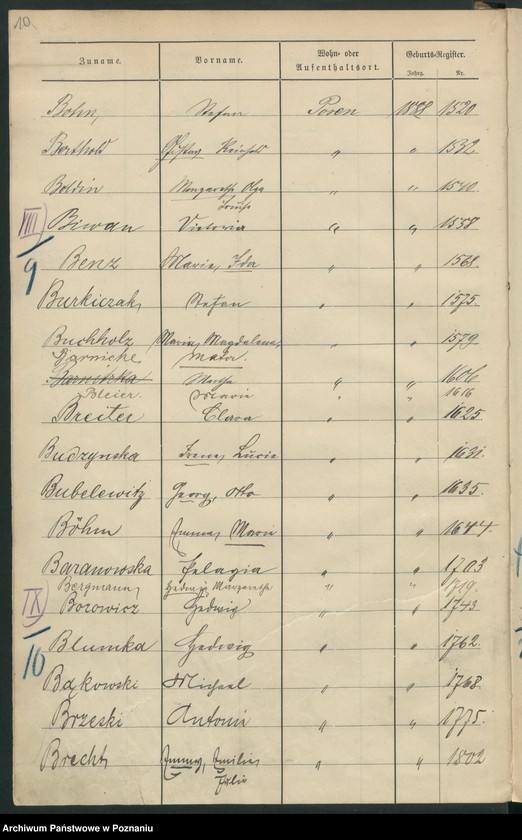 10.
Zuname. Vorname. Wohn- oder Aufenthaltsort. Geburts-Register.
Jahrg. Nr.
Bohn, Stefan Posen 1888 1520
Berthold Gustav Reinhold " " 1532
Boldin Margarethe Olga " " 1540
Louise
VIII Biwan Victoria " " 1558
9 Benz Marie, Ida " " 1568.
Burkiczak, Stefan " " 1575.
Buchholz Maria, Magdalena, " " 1579
Martha.
Barnitzka Martha " " 1606
Bleier. Marie " " 1616
Breiter Clara " " 1625.
Budzynska Irene, Lucie " " 1631.
Bubelewitz Georg, Otto " " 1635.
Böhm Emma, Marie " " 1644.
Baranowska Pelagia " " 1703
Bergmann, Hedwig Margarethe " " 1719.
IX Borowicz Hedwig " " 1743
10 Blumka Hedwig " " 1762.
Bąkowski Michael " " 1768.
Brzeski Antoni " " 1775.
Brecht, Emmy, Emilie, " " 1802
Julie
Archiwum Państwowe w Poznaniu